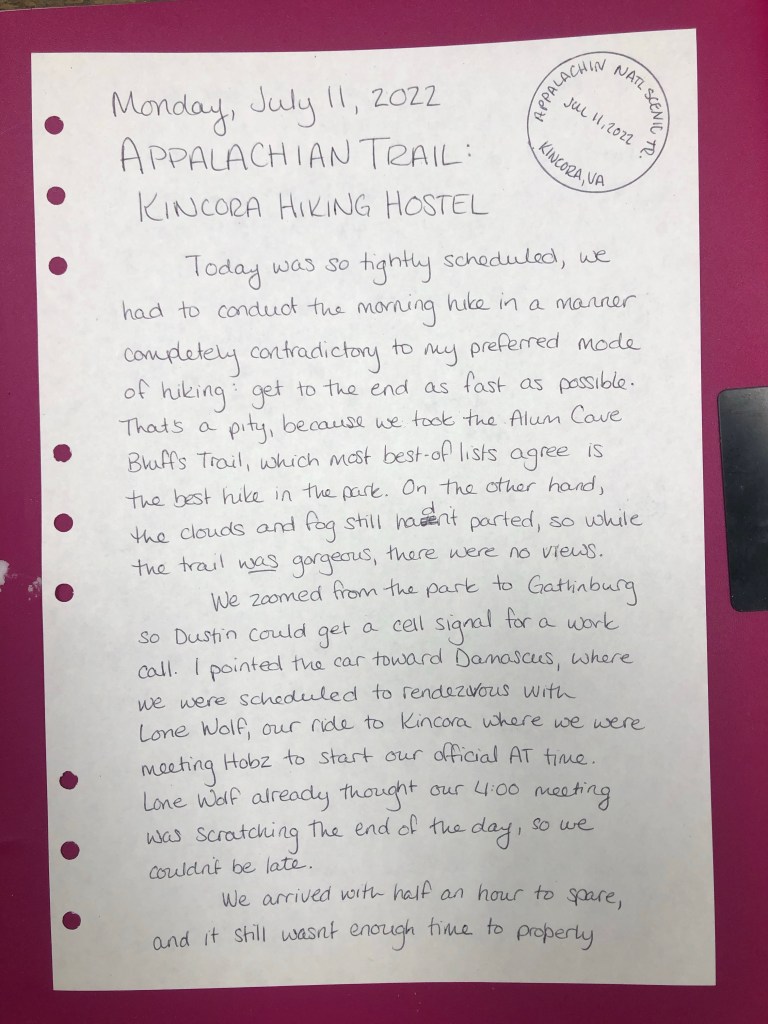 Monday, July 11, 2022
APPALACHIAN TRAIL:
KINCORA HIKING HOSTEL
APPALACHIN NAT'L SCENIC TR.
JUL 11, 2022
KINCORA, VA
Today was so tightly scheduled, we
had to conduct the morning hike in a manner
completely contradictory to my preferred mode
of hiking: get to the end as fast as possible.
That's a pity, because we took the Alum Cave
Bluffs Trail, which most best-of lists agree is
the best hike in the park. On the other hand,
the clouds and fog still hadn't parted, so while
the trail was gorgeous, there were no views.
We zoomed from the park to Gatlinburg
so Dustin could get a cell signal for a work
call. I pointed the car toward Damascus, where
we were scheduled to rendezvous with
Lone Wolf, our ride to Kincora where we were
meeting Hobz to start our official AT time.
Lone Wolf already thought our 4:00 meeting
was scratching the end of the day, so we
couldn't be late.
We arrived with half an hour to spare,
and it still wasn't enough time to properly